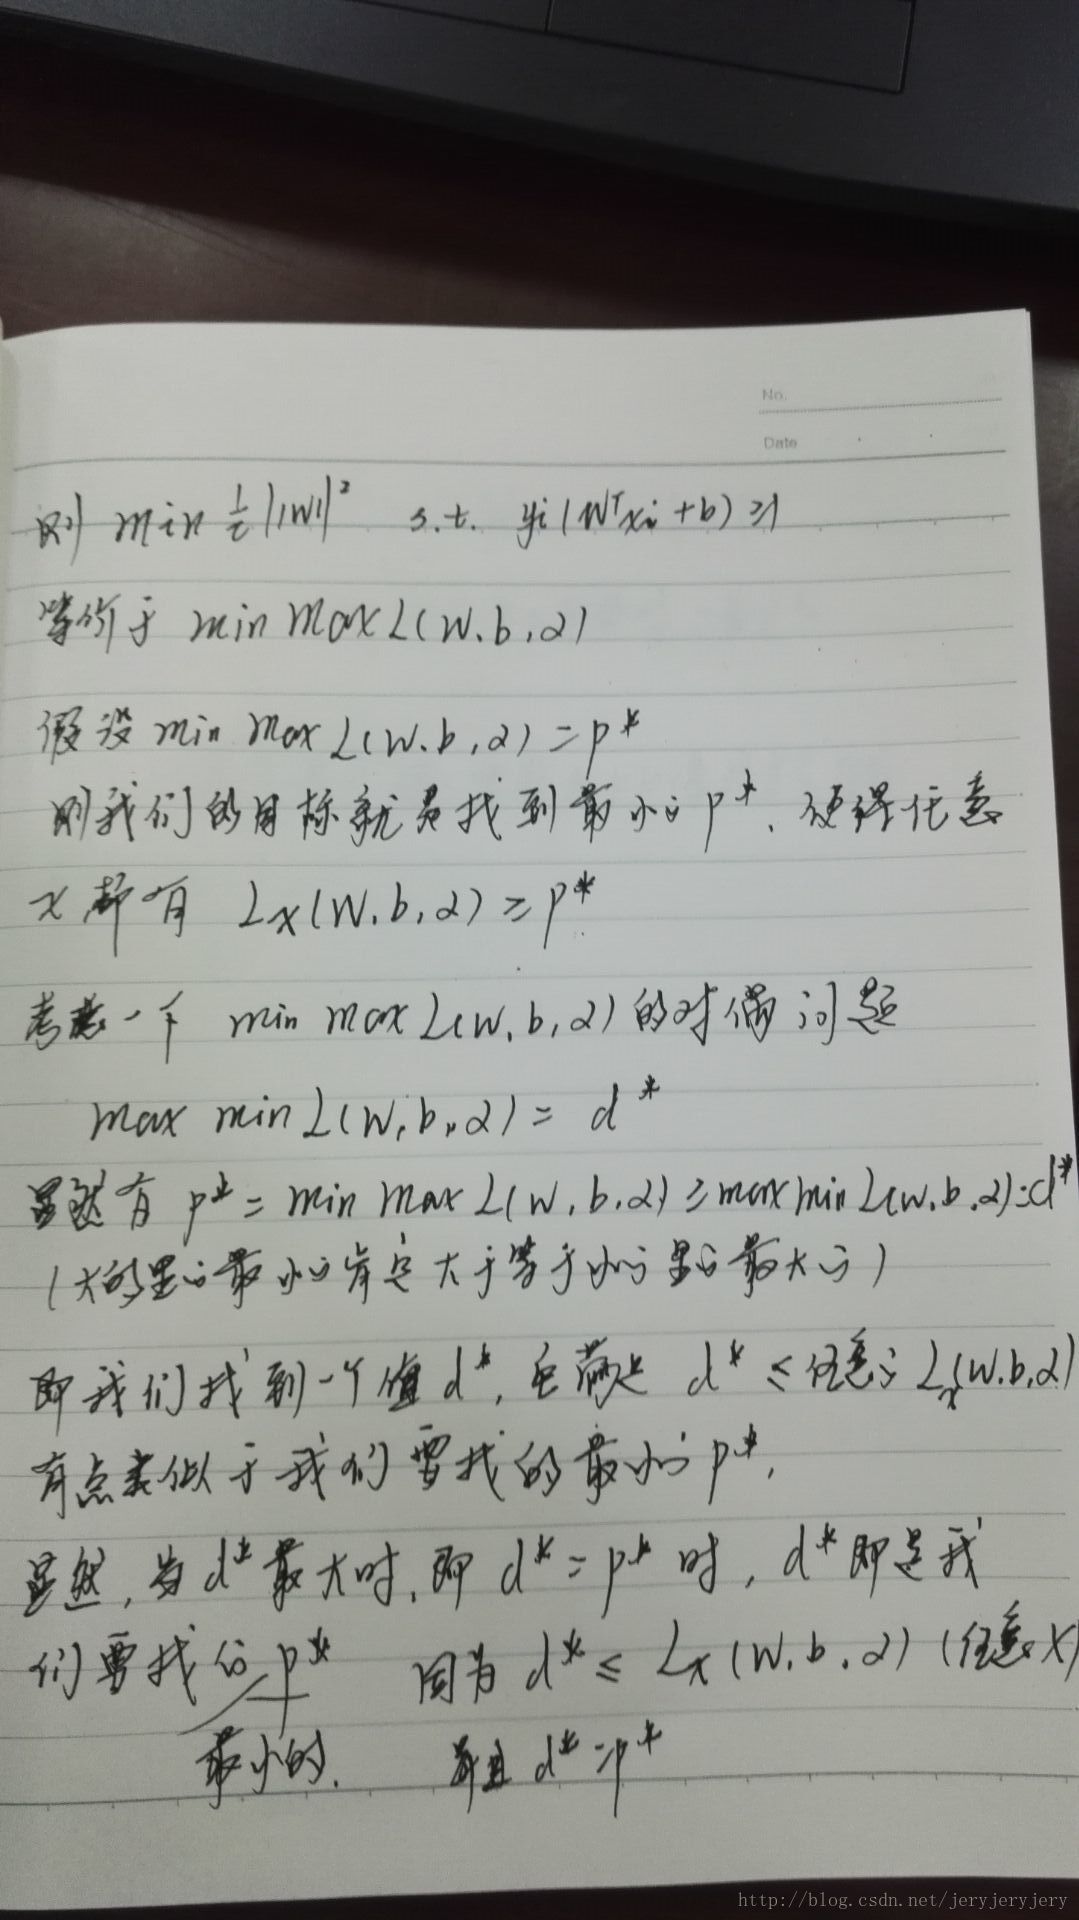 No.
Date
则 min ½||W||² s.t. yi(Wᵀxi+b)≥1
等价于 min max L(W.b,α)
假设 min max L(W.b,α)=p*
则我们的目标就是找到最小的p*,使得任意
x都有 Lx(W.b,α)≥p*
考虑一下 min max L(W,b,α)的对偶问题
max min L(W,b,α)=d*
显然有 p*=min max L(W,b,α)≥max min L(W.b,α)=d*
(大的里的最小的肯定大于等于小的里的最大的)
即我们找到一个值d*,它满足 d*≤任意的Lx(W.b,α)
有点类似于我们要找的最小的p*,
显然,当d*最大时,即 d*=p* 时,d*即是我
们要找的p* 因为 d*≤Lx(W,b,α)(任意X)
最小的. 并且 d*=p*
http://blog.csdn.net/jeryjeryjery